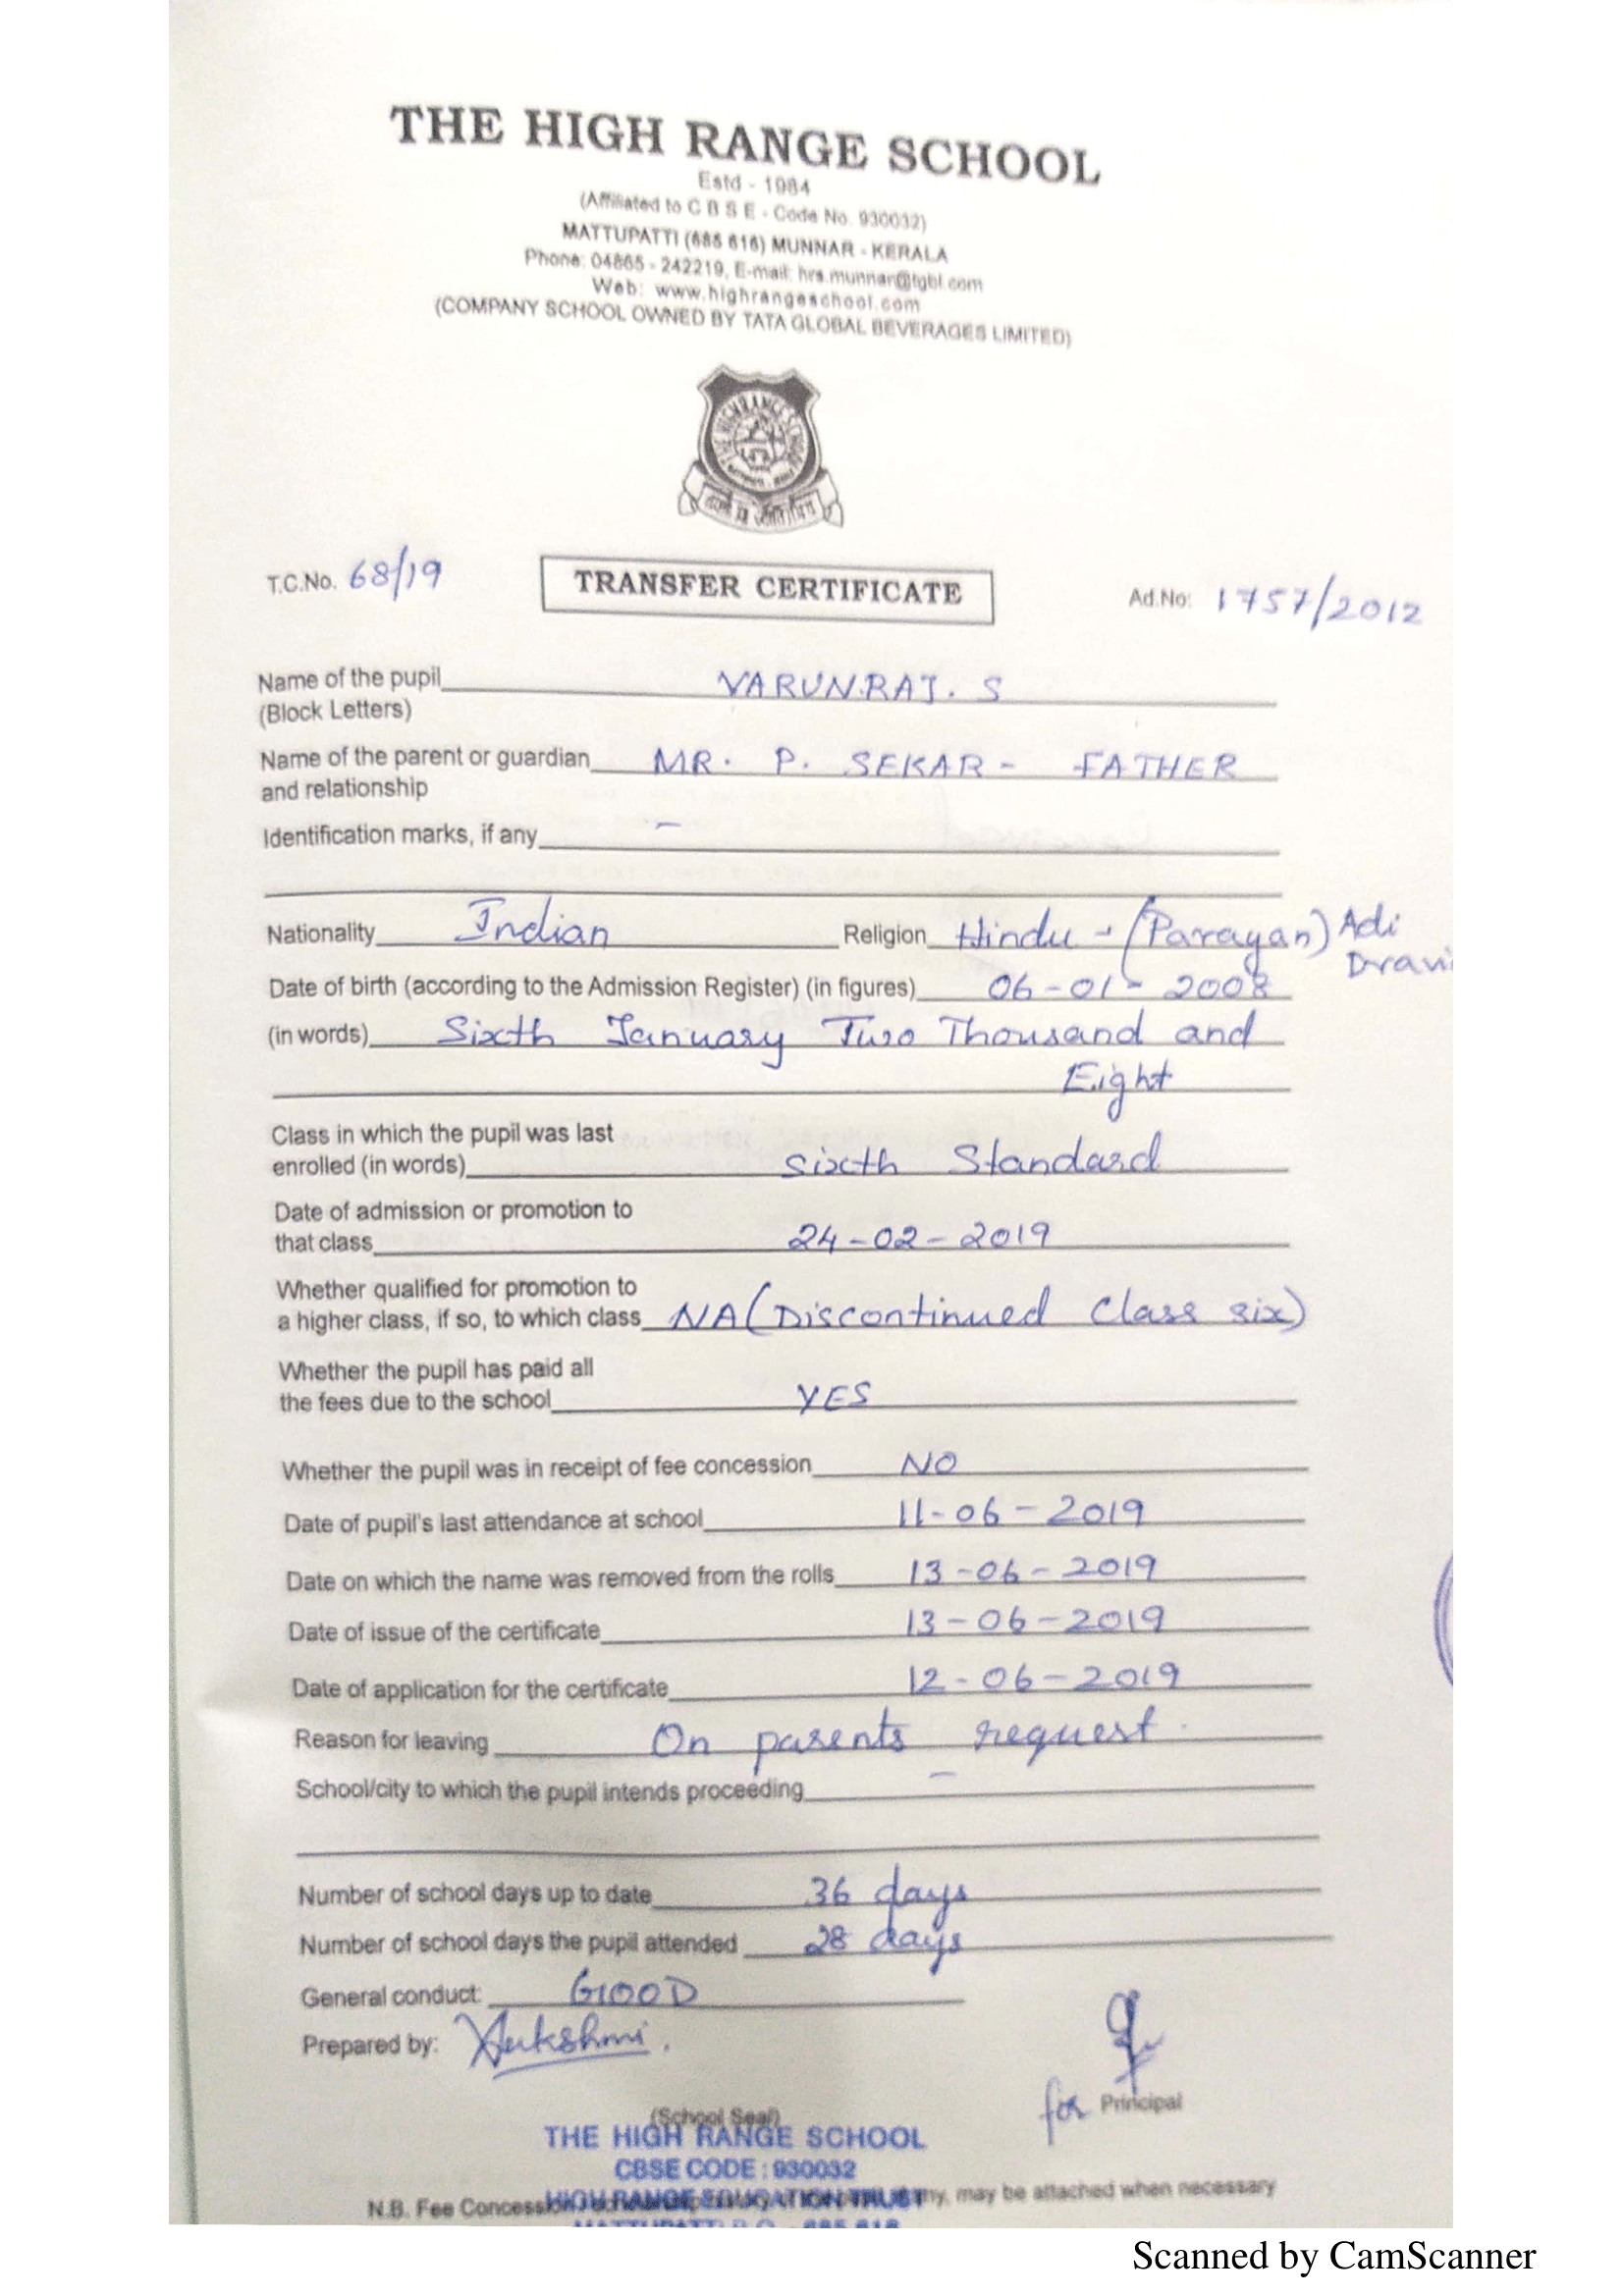 THE HIGH RANGE SCHOOL
Estd - 1984
(Affiliated to C B S E - Code No. 930032)
MATTUPATTI (685 616) MUNNAR - KERALA
Phone: 04865 - 242219, E-mail: hrs.munnar@tgbl.com
Web: www.highrangeschool.com
(COMPANY SCHOOL OWNED BY TATA GLOBAL BEVERAGES LIMITED)
T.C.No. 68/19 TRANSFER CERTIFICATE Ad.No: 1757/2012
Name of the pupil VARUNRAJ. S
(Block Letters)
Name of the parent or guardian MR. P. SEKAR - FATHER
and relationship
Identification marks, if any -
Nationality Indian Religion Hindu - (Parayan) Adi
Date of birth (according to the Admission Register) (in figures) 06-01-2008
(in words) Sixth January Two Thousand and
Eight
Class in which the pupil was last
enrolled (in words) Sixth Standard
Date of admission or promotion to
that class 24-02-2019
Whether qualified for promotion to
a higher class, if so, to which class NA (Discontinued Class six)
Whether the pupil has paid all
the fees due to the school YES
Whether the pupil was in receipt of fee concession NO
Date of pupil's last attendance at school 11-06-2019
Date on which the name was removed from the rolls 13-06-2019
Date of issue of the certificate 13-06-2019
Date of application for the certificate 12-06-2019
Reason for leaving On parents request.
School/city to which the pupil intends proceeding -
Number of school days up to date 36 days
Number of school days the pupil attended 28 days
General conduct: GOOD
Prepared by:
for Principal
(School Seal)
THE HIGH RANGE SCHOOL
CBSE CODE : 930032
HIGH RANGE EDUCATION TRUST
N.B. Fee Concession may be attached when necessary
MATTUPATTI P.O. - 685 616
Scanned by CamScanner